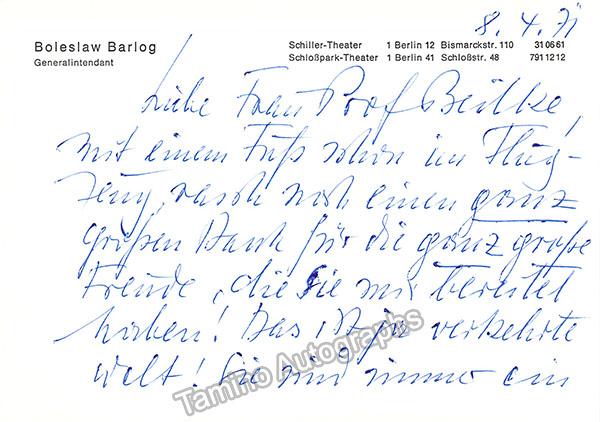 8.4.71
Boleslaw Barlog
Generalintendant
Schiller-Theater 1 Berlin 12 Bismarckstr. 110 310661
Schloßpark-Theater 1 Berlin 41 Schloßstr. 48 7911212
Liebe Frau Prof Beilke,
mit einem Fuß schon im Flug-
zeug, rasch noch einen ganz
großen Dank für die ganz große
Freude, die Sie mir bereitet
haben! Das ist ja verkehrte
Welt! Sie sind immer ein
Tamino Autographs